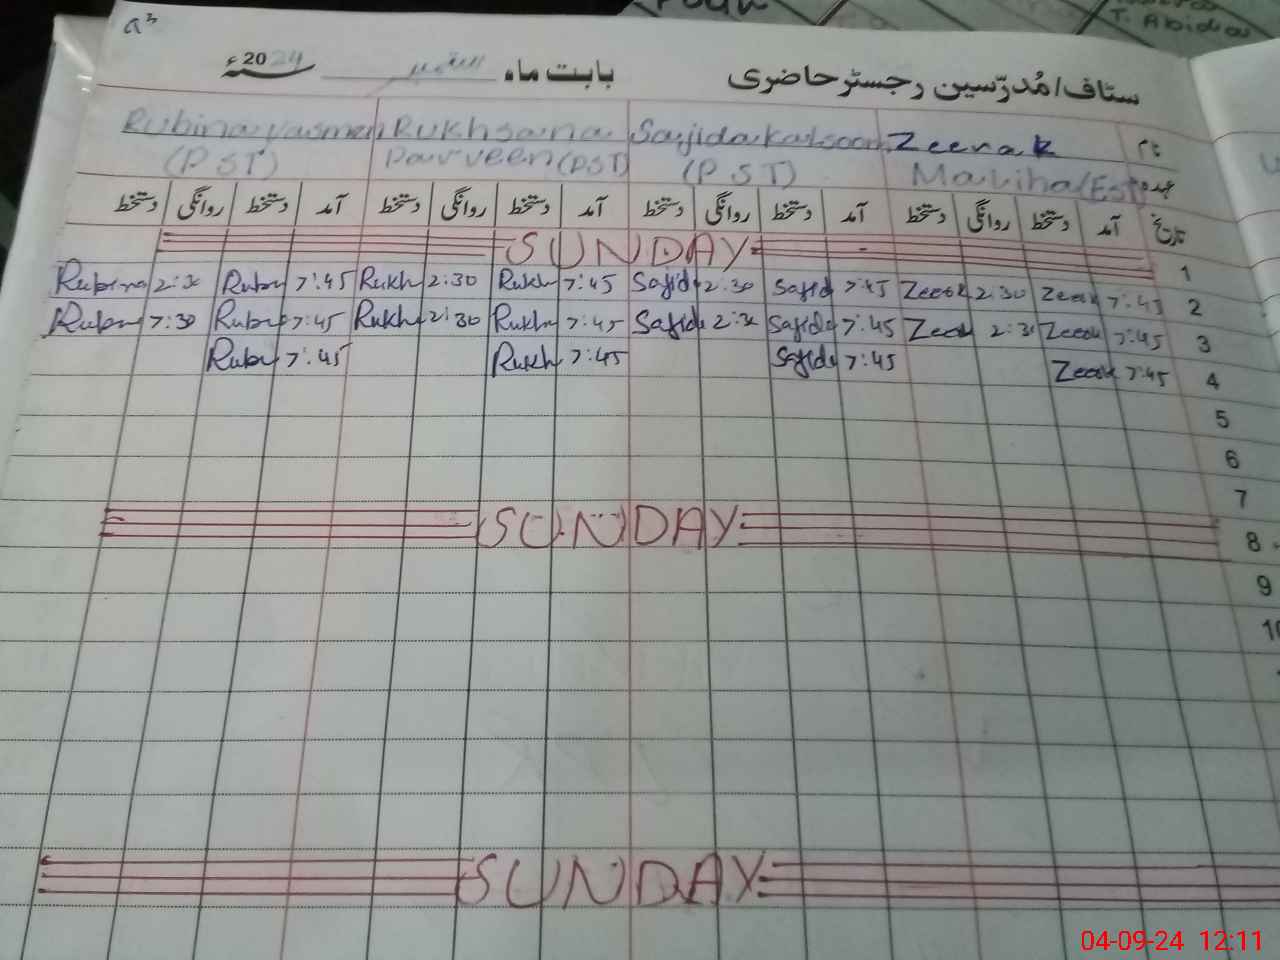 T. Abida
ستاف/مُدرّسین رجسٹر حاضری بابت ماہ ستمبر 2024ء
نام Zeenak Sajida Kalsoom Rukhsana Rubina Yasmen
عہدہ Maliha (EST) (PST) Parveen (PST) (PST)
تاریخ آمد دستخط روانگی دستخط آمد دستخط روانگی دستخط آمد دستخط روانگی دستخط آمد دستخط روانگی دستخط
SUNDAY 1
Rubina 2:30 Ruby 7:45 Rukh 2:30 Rukh 7:45 Sajid 2:30 Sajid 7:45 Zeeak 2:30 Zeeak 7:45 2
Ruby 7:30 Ruby 7:45 Rukh 2:30 Rukh 7:45 Sajida 2:30 Sajida 7:45 Zeeak 2:30 Zeeak 7:45 3
Ruby 7:45 Rukh 7:45 Sajida 7:45 Zeeak 7:45 4
5
6
7
SUNDAY 8
9
10
SUNDAY
04-09-24 12:11